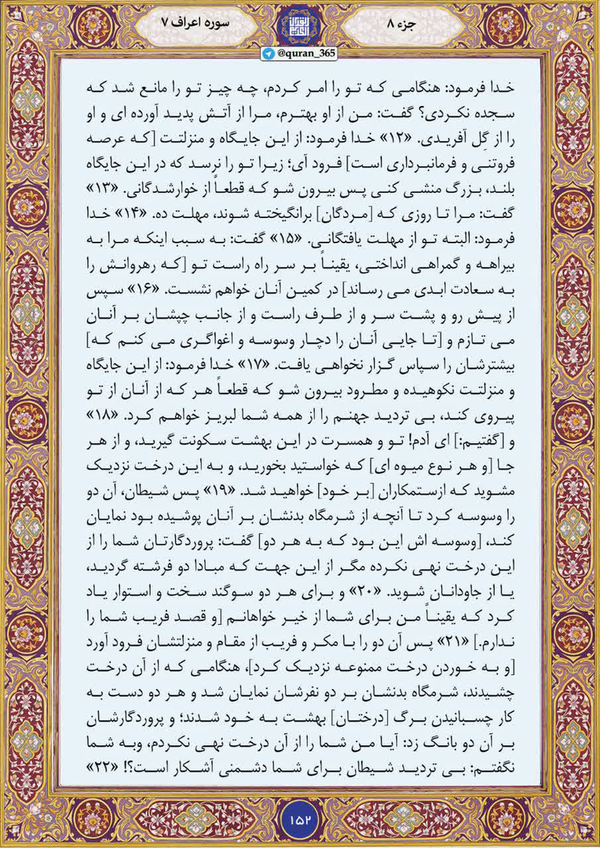 جزء ۸
سوره اعراف ۷
@quran_365
خدا فرمود: هنگامی که تو را امر کردم، چه چیز تو را مانع شد که
سجده نکردی؟ گفت: من از او بهترم، مرا از آتش پدید آورده ای و او
را از گِل آفریدی. «۱۲» خدا فرمود: از این جایگاه و منزلتت [که عرصه
فروتنی و فرمانبرداری است] فرود آی؛ زیرا تو را نرسد که در این جایگاه
بلند، بزرگ منشی کنی پس بیرون شو که قطعاً از خوارشدگانی. «۱۳»
گفت: مرا تا روزی که [مردگان] برانگیخته شوند، مهلت ده. «۱۴» خدا
فرمود: البته تو از مهلت یافتگانی. «۱۵» گفت: به سبب اینکه مرا به
بیراهه و گمراهی انداختی، یقیناً بر سر راه راست تو [که رهروانش را
به سعادت ابدی می رساند] در کمین آنان خواهم نشست. «۱۶» سپس
از پیش رو و پشت سر و از طرف راست و از جانب چپشان بر آنان
می تازم و [تا جایی آنان را دچار وسوسه و اغواگری می کنم که]
بیشترشان را سپاس گزار نخواهی یافت. «۱۷» خدا فرمود: از این جایگاه
و منزلتت نکوهیده و مطرود بیرون شو که قطعاً هر که از آنان از تو
پیروی کند، بی تردید جهنم را از همه شما لبریز خواهم کرد. «۱۸»
و [گفتیم:] ای آدم! تو و همسرت در این بهشت سکونت گیرید، و از هر
جا [و هر نوع میوه ای] که خواستید بخورید، و به این درخت نزدیک
مشوید که ازستمکاران [بر خود] خواهید شد. «۱۹» پس شیطان، آن دو
را وسوسه کرد تا آنچه از شرمگاه بدنشان بر آنان پوشیده بود نمایان
کند، [وسوسه اش این بود که به هر دو] گفت: پروردگارتان شما را از
این درخت نهی نکرده مگر از این جهت که مبادا دو فرشته گردید،
یا از جاودانان شوید. «۲۰» و برای هر دو سوگند سخت و استوار یاد
کرد که یقیناً من برای شما از خیر خواهانم [و قصد فریب شما را
ندارم.] «۲۱» پس آن دو را با مکر و فریب از مقام و منزلتشان فرود آورد
[و به خوردن درخت ممنوعه نزدیک کرد]، هنگامی که از آن درخت
چشیدند، شرمگاه بدنشان بر دو نفرشان نمایان شد و هر دو دست به
کار چسبانیدن برگ [درختان] بهشت به خود شدند؛ و پروردگارشان
بر آن دو بانگ زد: آیا من شما را از آن درخت نهی نکردم، وبه شما
نگفتم: بی تردید شیطان برای شما دشمنی آشکار است؟! «۲۲»
۱۵۲